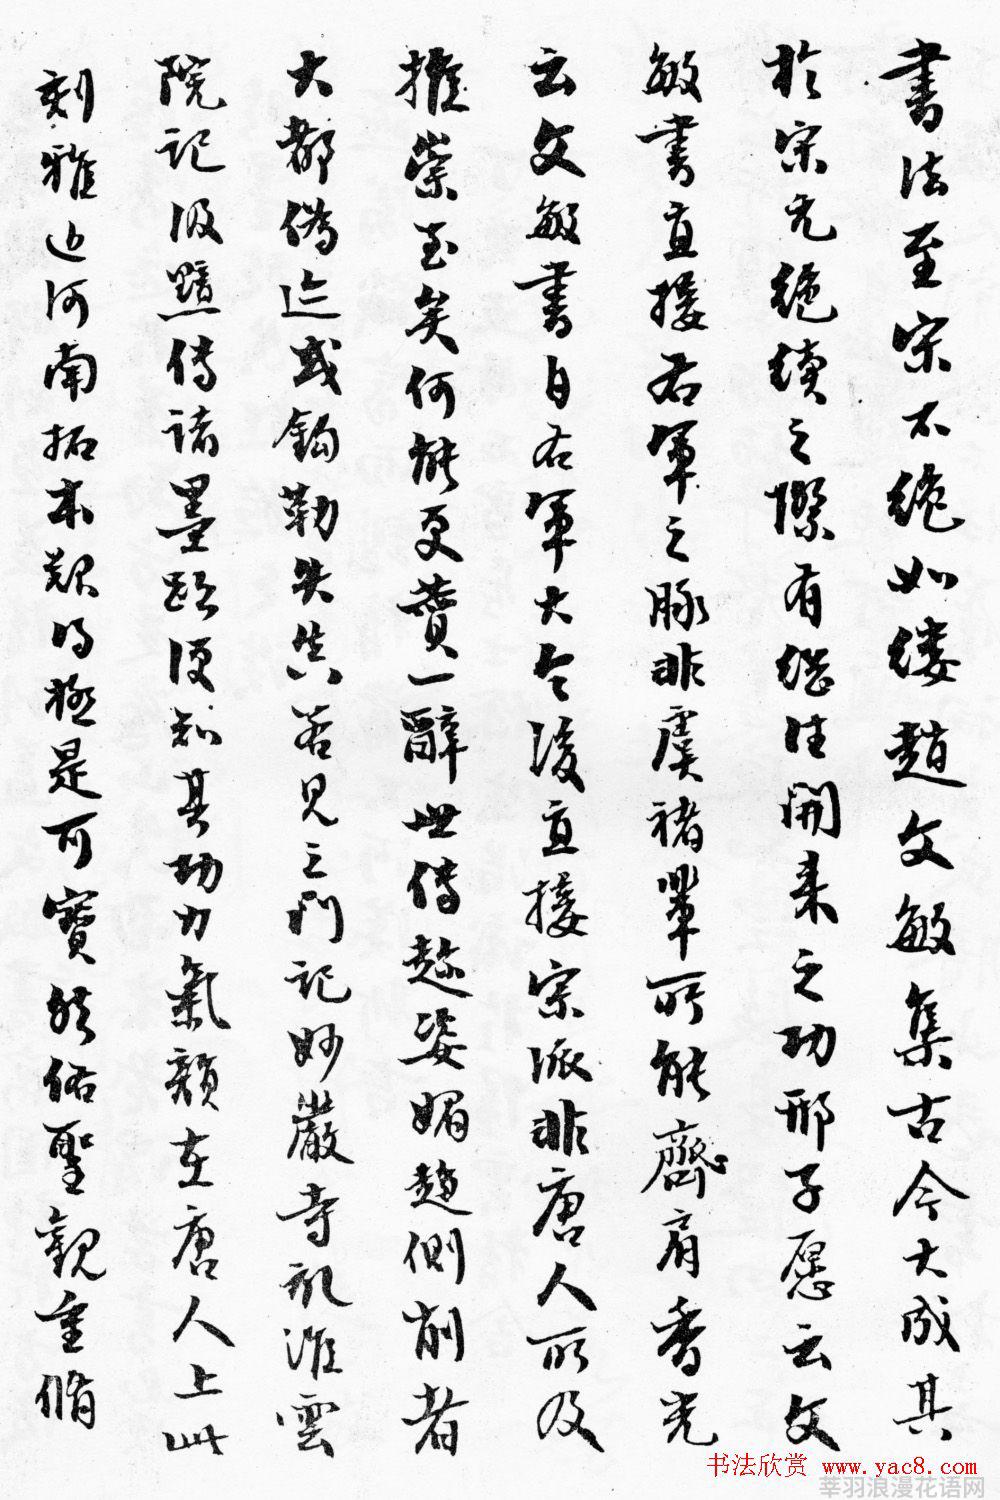 書法至宋不絶如縷趙文敏集古今大成其
於宋元絶續之際有繼往開来之功邢子愿云文
敏書直接右軍之脉非虞褚輩所能齊肩香光
云文敏書自右軍大令後直接宗派非唐人所及
推崇至矣何能更贊一辭世傳趙姿媚趙側削者
大都偽迹或鈎勒失真若見三門記妙嚴寺記淮雲
院記汲黯傳諸墨蹟便知其功力氣韻在唐人上此
刻雅近河南拓本頗明極是可寶然佑聖觀重脩
书法欣赏 www.yac8.com
莘羽浪漫花语网